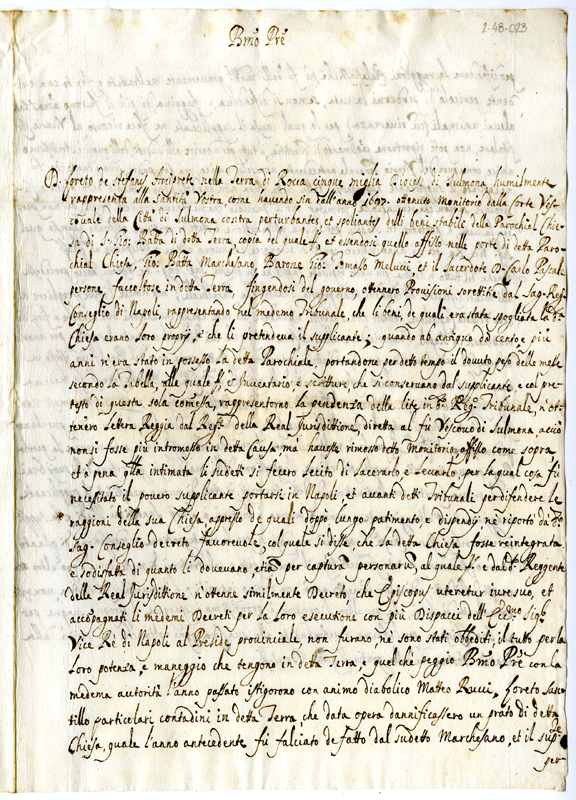 2-48-023
Bmo Pre
D. Loreto de Stefanis Arciprete nella Terra di Rocca cinque miglia Diocesi di Sulmona humilmente
rappresenta alla Santità Vostra, come havendo sin dall'anno 1697. ottenuto Monitorio dalla Corte Ves-
couale della Città di Sulmona contra perturbantes, et spoliantes delli beni stabili della Parochial Chie-
sa di S. Gio: Batta di detta Terra, copia del quale et essendosi quello affisso nelle porte di detta Paro-
chial Chiesa, Gio: Batta Marchesano, Barone Gio: Tomaso Melucci, et il Sacerdote D. Carlo Pascali
persone facoltose in detta Terra, fingendosi del governo, ottennero Provisioni sorettitie dal Sag: Regio
Conseglio di Napoli, rappresentando nel medemo Tribunale, che li beni, de quali era stata spogliata la da
Chiesa erano loro proprij, e che li pretendeva il supplicante, quando ab antiquo da cento e più
anni n'era stato in possesso la detta Parochiale, portandone per detto tempo il dovuto peso delle messe
secondo la Tabella, alle quale et Inventario, e scritture, che si conservano dal supplicante, e col pre-
testo di questa sola comessa, rappresentorno la pendenza della lite in do Reg: Tribunale, n'ot-
tenero lettera Reggia dal Regte della Real Jurisdittione, diretta al fù Vescouo di Sulmona acciò
non si fosse più intromesso in detta Causa, mà hauesse rimosso detto Monitorio affisso come sopra
et à pena intimata li sudetti si fecero lecito di lacerarlo, e levarlo, per la qual cosa fù
necessitato il povero supplicante portarsi in Napoli, et auanti detti Tribunali per difendere le
raggioni della sua Chiesa, appresso de quali doppo lungo patimento e dispendij ne riportò da do
Sag: Conseglio decreto fauoreuole, col quale si disse che la detta Chiesa fosse reintegrata
e sodisfatta di quanto li doveuano etiam per capturam personarum, al quale e da do Reggente
della Real Jurisdittione n'ottenne similmente Decreto, che Episcopus uteretur iure suo, et
accopagnati li medemi Decreti per la loro esecutione con più Dispacci dell'Ecc.mo Sigr
Vice Rè di Napoli al Preside provinciale, non furano, ne sono stati obbediti, il tutto per la
loro potenza, e maneggio che tengono in detta Terra, e quel ch'è peggio Bmo Pre con la
medema autorità l'anno passato istigorono con animo diabolico Matteo Rucci, Loreto
particolari contadini in detta Terra, che data opera dannificassero un prato di detta
Chiesa, quale l'anno antecedente fù falciato de fatto dal sudetto Marchesano, et il supte
per